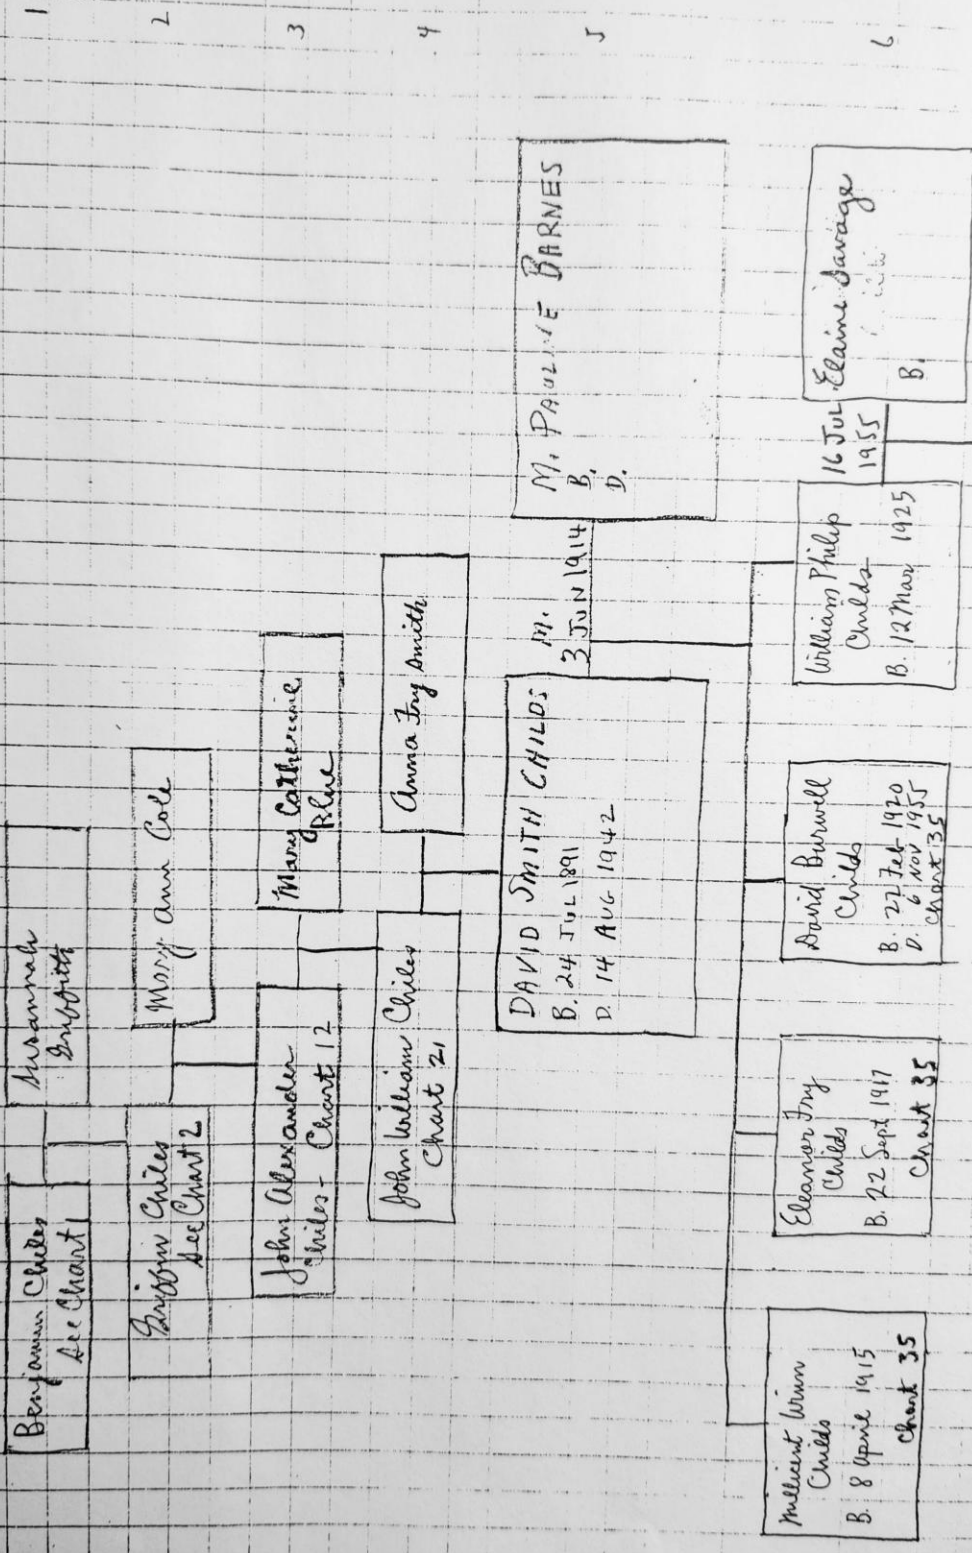 1
Benjamin Chiles
See Chart 1
Susannah
Griffith
2
Griffin Chiles
See Chart 2
Mary Ann Cole
3
John Alexander
Chiles - Chart 12
Mary Catherine
Blue
4
John William Chiles
Chart 21
Anna Fry Smith
5
DAVID SMITH CHILDS
B. 24 JUL 1891
D. 14 AUG 1942
M.
3 JUN 1914
M. PAULINE BARNES
B.
D.
6
Millicent
Childs
B. 8 April 1915
Chart 35
Eleanor Fry
Childs
B. 22 Sept 1917
Chart 35
David Burwell
Childs
B. 27 Feb 1920
D. 6 Nov 1955
Chart 35
William Philip
Childs
B. 12 Mar 1925
16 JUL
1955
Elaine Savage
B.